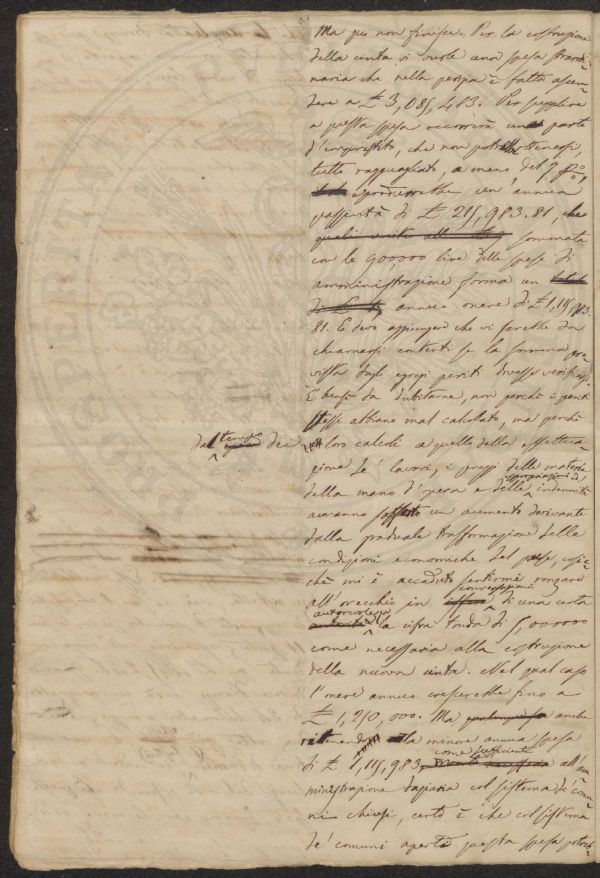 Ma più non finisce. Per la costruzione
della cinta vi vuole una spesa straordi-
naria che nella perizia è fatta ascen-
dere a £ 3,085,483. Per supplire
a questa spesa occorrerà una parte
d'imprestito, che non potrebbe ottenersi,
tutto ragguagliato, a meno del 7 p%,
un'annua
passività di £ 215,983.81, che
sommata
con le 900000 lire delle spese di
amministrazione forma un
annuo onere di £ 1,115,983.
81. E devo aggiungere che vi sarebbe da
chiamarsi contenti se la somma pre-
vista dagli egregi periti dovesse verificarsi.
È bensì da dubitarne, non perchè i periti
stessi abbiano mal calcolato, ma perchè
dal tempo dei loro calcoli a quello della effettua-
zione de' lavori, i prezzi delle materie
della mano d'opera e delle espropriazioni di indennità
avranno sofferto un aumento derivante
dalla graduale trasformazione delle
condizioni economiche del paese, cosic-
chè mi è accaduto sentirmi ronzare
all'orecchio in conversazioni di una certa
autorevolezza la cifra tonda di 5,000000
come necessaria alla costruzione
della nuova cinta. Nel qual caso
l'onere annuo crescerebbe fino a
£ 1,250,000. Ma anche
ritenendo la minore annua spesa
di £ 1,115,983, come sufficiente all'am
ministrazione daziaria col sistema de' comu-
ni chiusi, certo è che col sistema
de' comuni aperti questa spesa potreb-